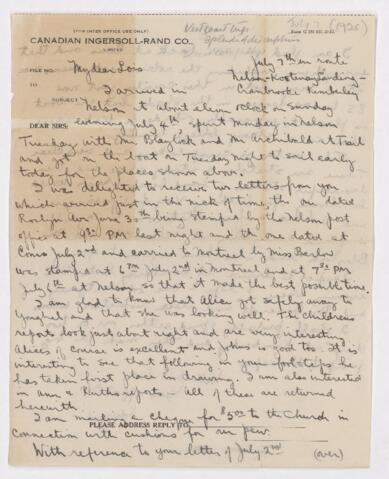 (FOR INTER OFFICE USE ONLY)
West Coast trip
July 7 (1925)
CANADIAN INGERSOLL-RAND CO.
LIMITED
splendid description
July 7th en route
FILE NO.
My dear Lois
Nelson-Kootenay Landing-
TO
I arrived in
Cranbrooke Kimberley
SUBJECT
Nelson at about eleven oclock on Sunday
DEAR SIRS:
evening July 4th, spent Monday in Nelson
Tuesday with Mr Blaylock and Mr Archibald at Trail
and got on the boat on Tuesday night to sail early
today for the places shown above.
I was delighted to receive two letters from you
which arrived just in the nick of time, the one dated
Roslyn Ave June 30th being stamped by the Nelson post
office at 9 30 PM last night and the one dated at
Como July 2nd and carried to Montreal by Miss Barlow
was stamped at 6 PM July 2nd in Montreal and at 7 30 PM
July 6th at Nelson, so that it made the best possible time.
I am glad to know that Alice got safely away to
and that she was looking well. The Childrens
reports look just about right and are very interesting
Alices of course is excellent and Johns is good too. It is
interesting to see that following in your footsteps he
has taken first place in drawing. I am also interested
in Ann & Ruths reports - All of these are returned
herewith.
I am mailing a cheque for $5.00 to the Church in
PLEASE ADDRESS REPLY TO
connection with cushions for our pew.
With reference to your letter of July 2nd
(over)